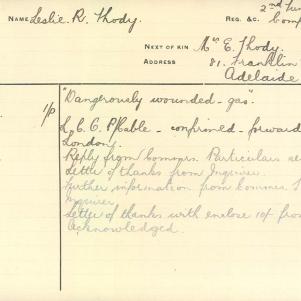 2nd
NAME Leslie R. Thody.
REG. &C. Comp
NEXT OF KIN Mrs E. Thody.
ADDRESS 81. Franklin
Adelaide
1/p "Dangerously wounded - gas".
L.C.C. P/Cable - confirmed - forward
London.
Reply from Commrs. Particulars se
Letter of thanks from Inquirer.
Further information from Commrs.
Inquirer
Letter of thanks with enclose 10/ from
Acknowledged.